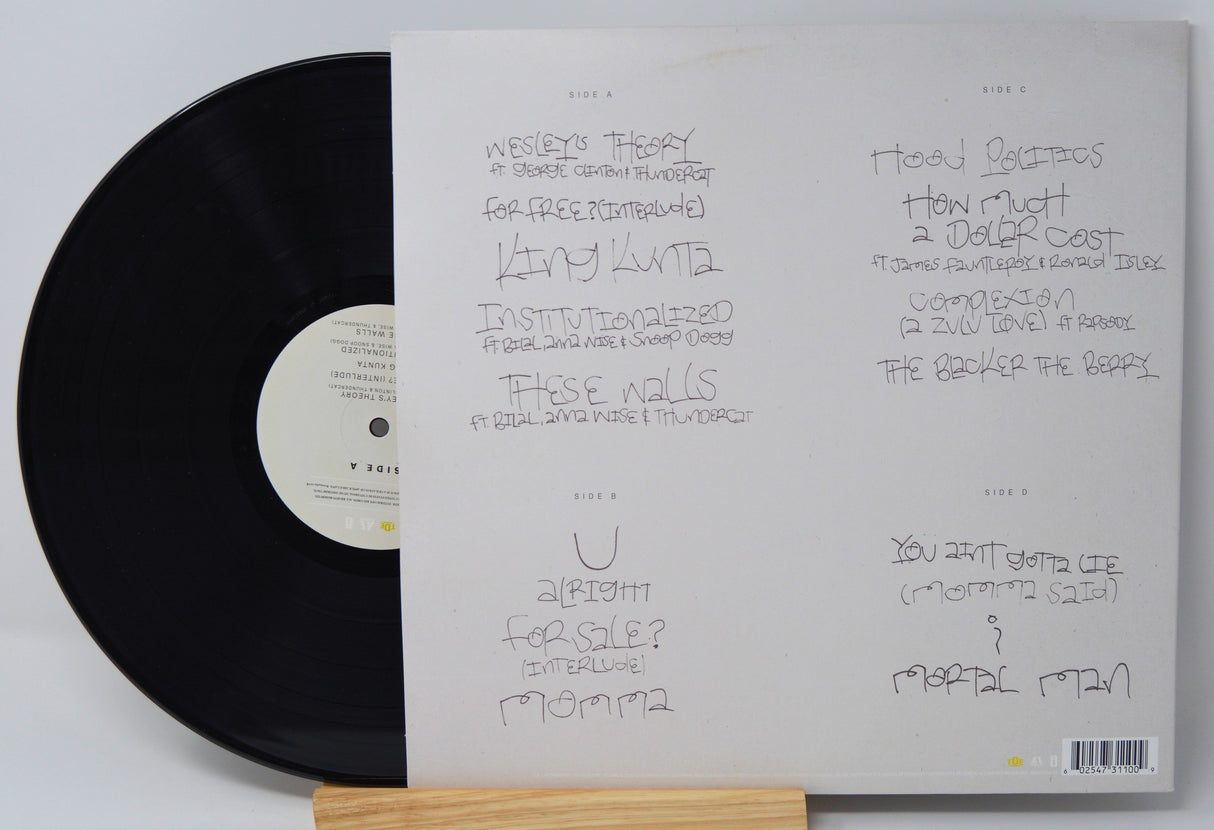 SIDE A
WESLEY'S THEORY
ft. GEORGE CLINTON & THUNDERCAT
FOR FREE? (INTERLUDE)
KING KUNTA
INSTITUTIONALIZED
ft. BILAL, ANNA WISE & SNOOP DOGG
THESE WALLS
ft. BILAL, ANNA WISE & THUNDERCAT
SIDE B
U
ALRIGHT
FOR SALE?
(INTERLUDE)
MOMMA
SIDE C
HOOD POLITICS
HOW MUCH
A DOLLAR COST
ft JAMES FAUNTLEROY & RONALD ISLEY
COMPLEXION
(A ZULU LOVE) ft RAPSODY
THE BLACKER THE BERRY
SIDE D
YOU AINT GOTTA LIE
(MOMMA SAID)
i
MORTAL MAN
TDE
6 02547 31100 9
SIDE A
EY'S THEORY
LINTON & THUNDERCAT)
E? (INTERLUDE)
G KUNTA
TIONALIZED
WISE, & SNOOP DOGG)
E WALLS
WISE, & THUNDERCAT)
TDE